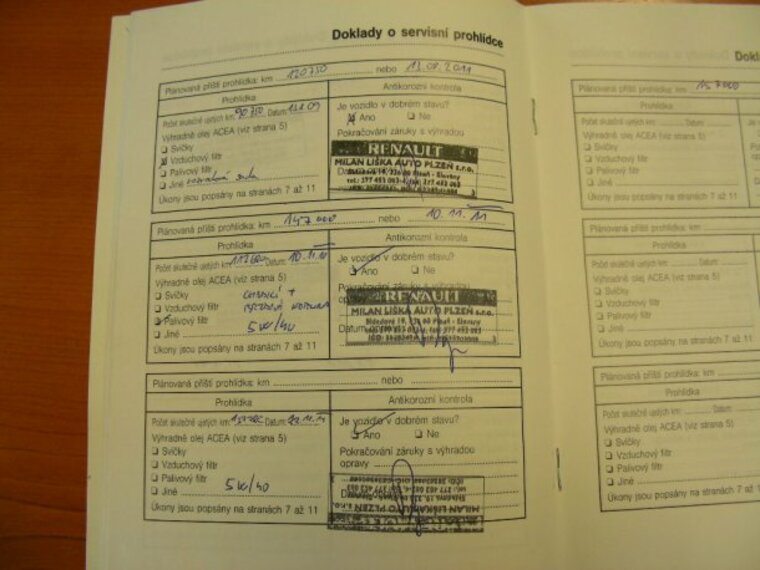 Doklady o servisní prohlídce
Plánovaná příští prohlídka: km 120750 nebo 13.08.2011
Prohlídka
Antikorozní kontrola
Počet skutečně ujetých km: 90750 Datum:
Výhradně olej ACEA (viz strana 5)
❑ Svíčky
Vzduchový filtr
❑ Palivový filtr
❑ Jiné
Úkony jsou popsány na stranách 7 až 11
Je vozidlo v dobrém stavu?
Ano ❑ Ne
Pokračování záruky s výhradou
RENAULT
MILAN LIŠKA AUTO PLZEŇ s.r.o.
Plánovaná příští prohlídka: km 147000 nebo 10.11.11
Prohlídka
Antikorozní kontrola
Počet skutečně ujetých km: Datum: 10.11.10
Výhradně olej ACEA (viz strana 5)
❑ Svíčky
❑ Vzduchový filtr
Palivový filtr
❑ Jiné 5W/40
Úkony jsou popsány na stranách 7 až 11
Je vozidlo v dobrém stavu?
❑ Ano ❑ Ne
Pokračování záruky s výhradou
opravy
RENAULT
MILAN LIŠKA AUTO PLZEŇ s.r.o.
Datum opravy
Plánovaná příští prohlídka: km nebo
Prohlídka
Antikorozní kontrola
Počet skutečně ujetých km: Datum:
Výhradně olej ACEA (viz strana 5)
❑ Svíčky
❑ Vzduchový filtr
❑ Palivový filtr
❑ Jiné 5W/40
Úkony jsou popsány na stranách 7 až 11
Je vozidlo v dobrém stavu?
❑ Ano ❑ Ne
Pokračování záruky s výhradou
opravy
MILAN LIŠKA AUTO PLZEŇ s.r.o.
Plánovaná příští prohlídka: km 157000
Prohlídka
Počet skutečně ujetých km: Datum:
Výhradně olej ACEA (viz strana 5)
❑ Svíčky
❑ Vzduchový filtr
❑ Palivový filtr
❑ Jiné
Úkony jsou popsány na stranách 7 a
Plánovaná příští prohlídka: km
Prohlídka
Počet skutečně ujetých km: Datum:
Výhradně olej ACEA (viz strana 5)
❑ Svíčky
❑ Vzduchový filtr
❑ Palivový filtr
❑ Jiné
Úkony jsou popsány na stranách 7
Plánovaná příští prohlídka: km
Prohlídka
Počet skutečně ujetých km: Datum
Výhradně olej ACEA (viz strana 5)
❑ Svíčky
❑ Vzduchový filtr
❑ Palivový filtr
❑ Jiné
Úkony jsou popsány na stranách 7